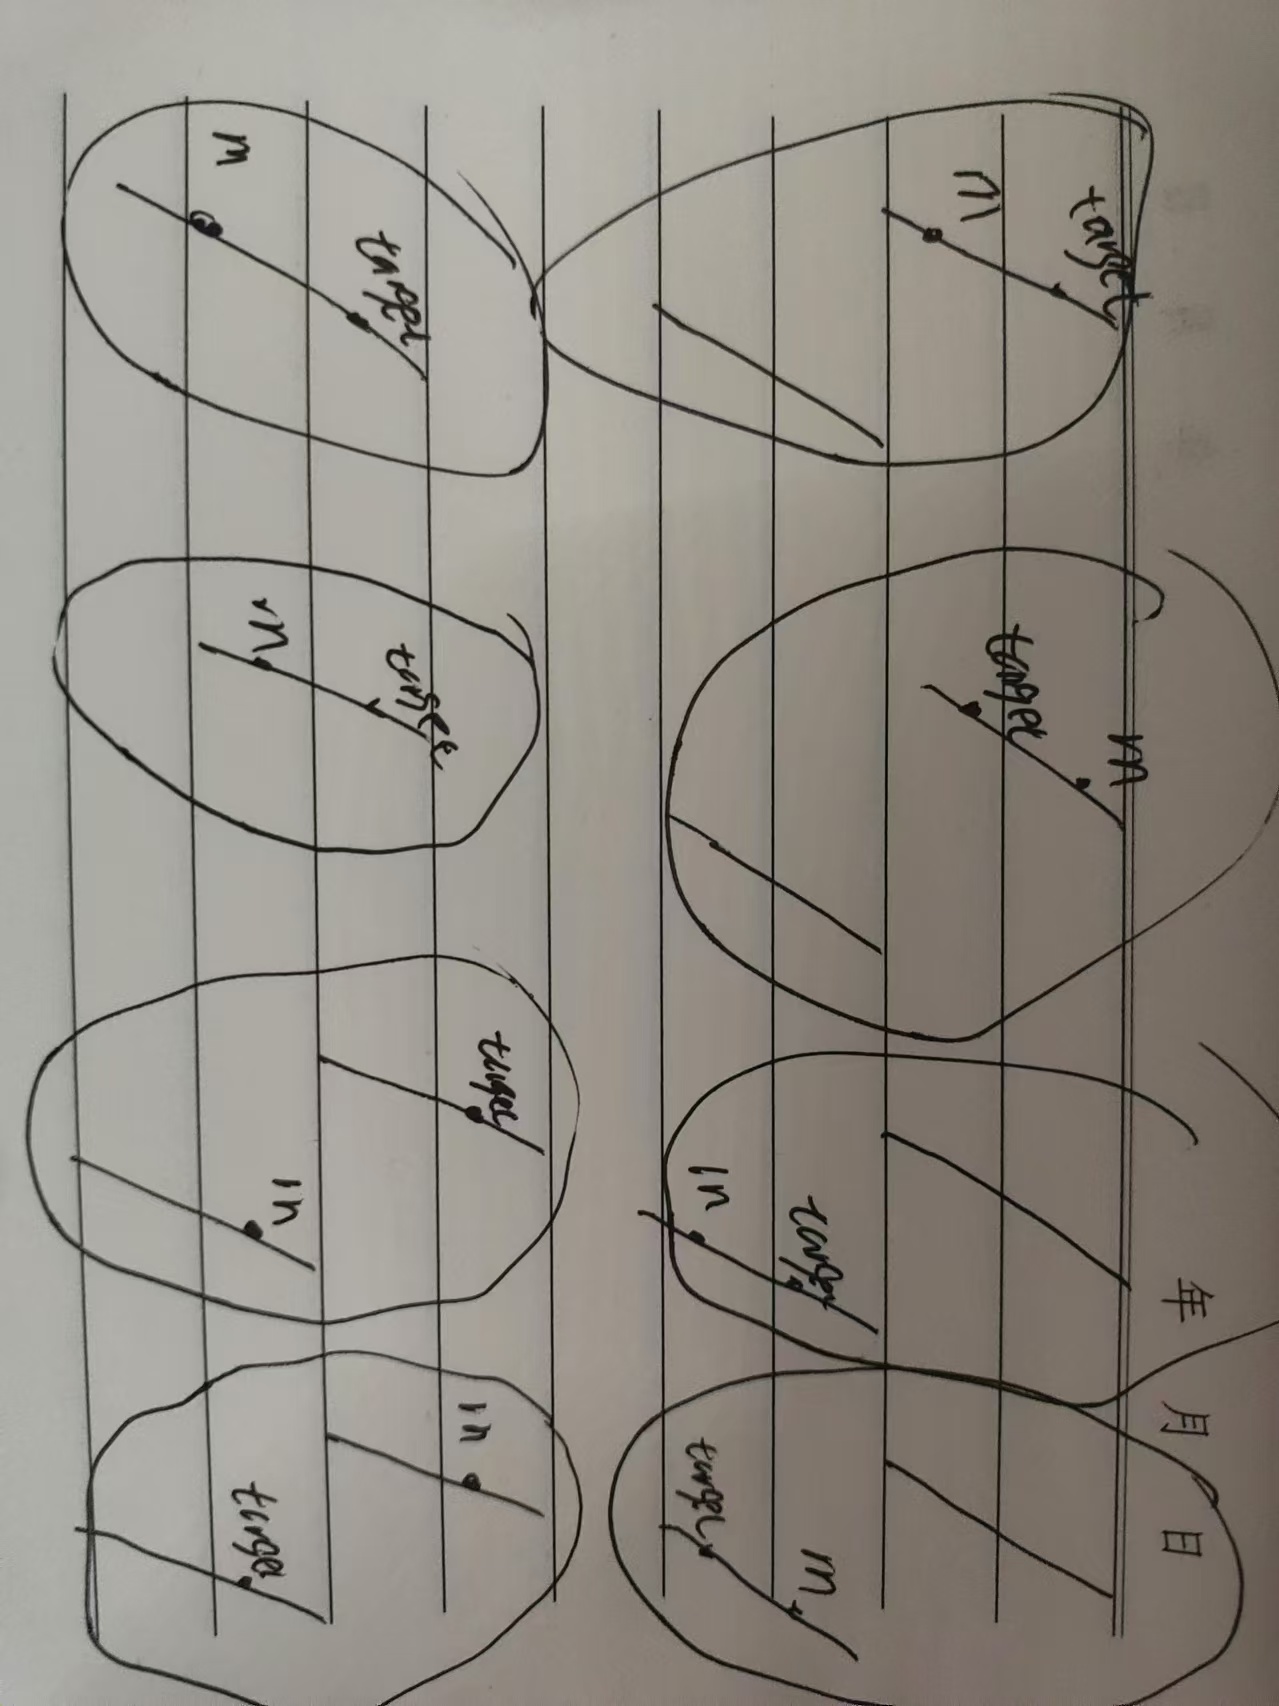 年 月 日
target
m
m
target
target
m
m
target
target
m
target
m
target
m
m
target